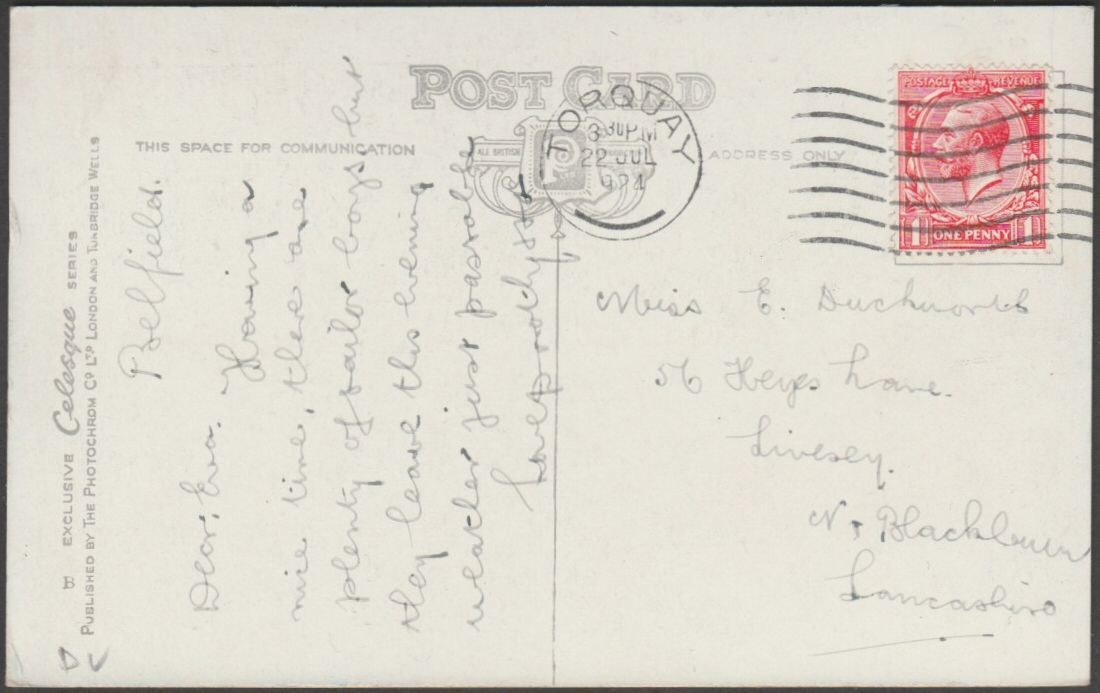 POST CARD
THIS SPACE FOR COMMUNICATION
ADDRESS ONLY
ALL BRITISH
TORQUAY
3 30 PM
22 JUL
1924
POSTAGE REVENUE
1 ONE PENNY 1
B EXCLUSIVE Celesque SERIES
PUBLISHED BY THE PHOTOCHROM Co. LTD. LONDON AND TUNBRIDGE WELLS
Belfield.
Dear, Eva.
Having a
nice time, there are
plenty of sailor boys but
they leave this evening
weather just passable
Love
Miss E. Duckworth
56 Heys Lane.
Livesey.
N. Blackburn
Lancashire